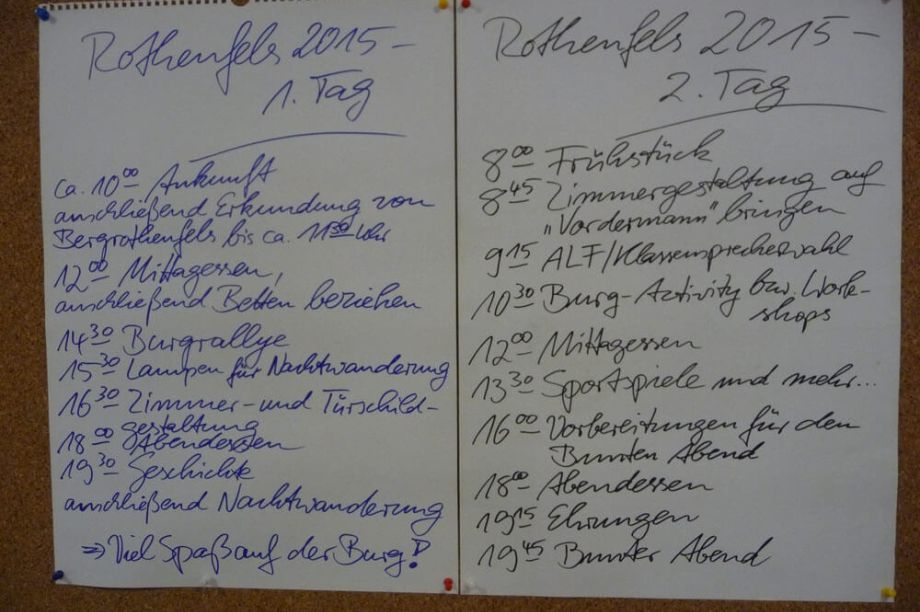 Rothenfels 2015 –
1. Tag
ca. 10⁰⁰ Ankunft
anschließend Erkundung von
Bergrothenfels bis ca. 11³⁰ Uhr
12⁰⁰ Mittagessen,
anschließend Betten beziehen
14³⁰ Burgrallye
15³⁰ Lampen für Nachtwanderung
16³⁰ Zimmer- und Türschild-
gestaltung
18⁰⁰ Abendessen
19³⁰ Geschichte
anschließend Nachtwanderung
⇒ Viel Spaß auf der Burg!
Rothenfels 2015 –
2. Tag
8⁰⁰ Frühstück
8⁴⁵ Zimmergestaltung auf
„Vordermann" bringen
9¹⁵ ALF/Klassensprecherwahl
10³⁰ Burg-Activity bzw. Work-
shops
12⁰⁰ Mittagessen
13³⁰ Sportspiele und mehr...
16⁰⁰ Vorbereitungen für den
Bunten Abend
18⁰⁰ Abendessen
19¹⁵ Ehrungen
19⁴⁵ Bunter Abend